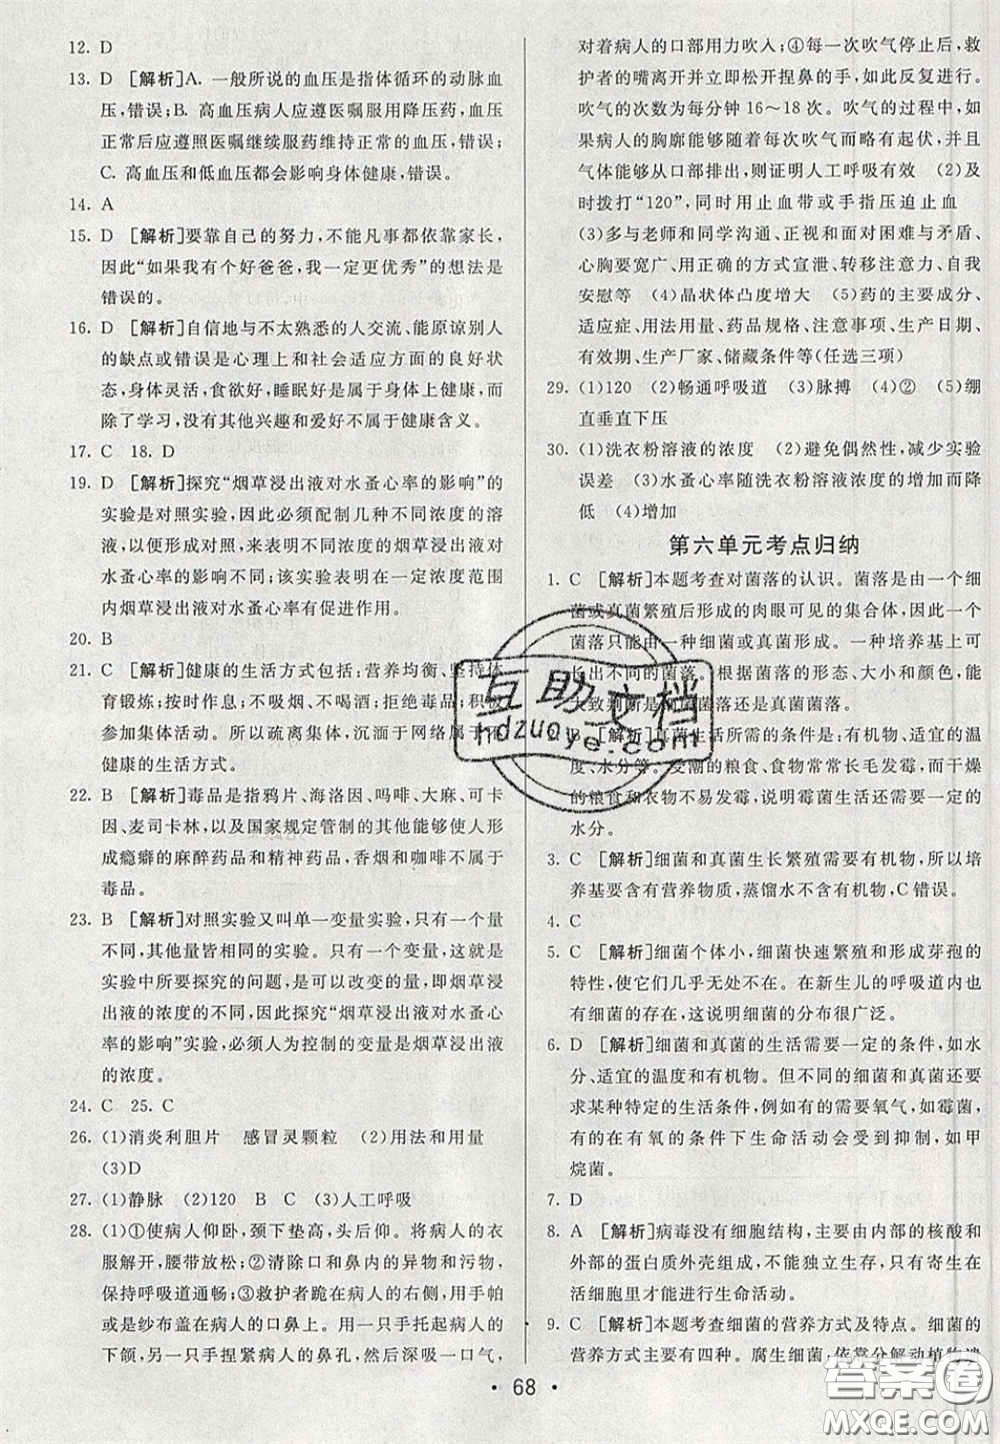 12. D
13. D [解析]A. 一般所说的血压是指体循环的动脉血
压,错误;B. 高血压病人应遵医嘱服用降压药,血压
正常后应遵照医嘱继续服药维持正常的血压,正确;
C. 高血压和低血压都会影响身体健康,错误。
14. A
15. D [解析]要靠自己的努力,不能凡事都依靠家长,
因此“如果我有个好爸爸,我一定更优秀”的想法是
错误的。
16. D [解析]自信地与不太熟悉的人交流、能原谅别人
的缺点或错误是心理上和社会适应方面的良好状
态,身体灵活,食欲好,睡眠好是属于身体上健康,而
除了学习,没有其他兴趣和爱好不属于健康含义。
17. C 18. D
19. D [解析]探究“烟草浸出液对水蚤心率的影响”的
实验是对照实验,因此必须配制几种不同浓度的溶
液,以便形成对照,来表明不同浓度的烟草浸出液对
水蚤心率的影响不同;该实验表明在一定浓度范围
内烟草浸出液对水蚤心率有促进作用。
20. B
21. C [解析]健康的生活方式包括:营养均衡、坚持体
育锻炼;按时作息;不吸烟、不喝酒;拒绝毒品;积极
参加集体活动。所以疏离集体,沉湎于网络属于不
健康的生活方式。
22. B [解析]毒品是指鸦片、海洛因、吗啡、大麻、可卡
因、麦司卡林,以及国家规定管制的其他能够使人形
成瘾癖的麻醉药品和精神药品,香烟和咖啡不属于
毒品。
23. B [解析]对照实验又叫单一变量实验,只有一个量
不同,其他量皆相同的实验。只有一个变量,这就是
实验中所要探究的问题,是可以改变的量,即烟草浸
出液的浓度的不同,因此探究“烟草浸出液对水蚤心
率的影响”实验,必须人为控制的一定是烟草浸出液
的浓度。
24. C 25. C
26. (1)消炎利胆片 感冒灵颗粒 (2)用法和用量
(3)D
27. (1)静脉 (2)120 B C (3)人工呼吸
28. (1)①使病人仰卧,颈下垫高,头后仰,将病人的衣
服解开,腰带放松;②清除口和鼻内的异物和污物,
保持呼吸道通畅;③救护者跪在病人的右侧,用手帕
或是纱布盖在病人的口鼻上。用一只手托起病人的下
颌,另一只手捏紧病人的鼻孔,然后深吸一口气,
对着病人的口部用力吹入;④每一次吹气停止后,救
护者的嘴离开并立即松开捏鼻的手,以便病人呼气。
吹气的次数为每分钟16～18次。吹气的过程中,如
果病人的胸廓能够随着每次吹气而略有起伏,并且
气体能够从口部排出,则证明人工呼吸有效 (2)及
时拨打“120”,同时用止血带或手指压迫止血
(3)多与老师和同学沟通、正视和面对困难与矛盾、
心胸要宽广、用正确的方式宣泄、转移注意力、自我
安慰等 (4)晶状体凸度增大 (5)药的主要成分、
适应症、用法用量、药品规格、注意事项、生产日期、
有效期、生产厂家、储藏条件等(任选三项)
29. (1)120 (2)畅通呼吸道 (3)脉搏 (4)② (5)绷
直垂直下压
30. (1)洗衣粉溶液的浓度 (2)避免偶然性,减少实验
误差 (3)水蚤心率随洗衣粉溶液浓度的增加而降
低 (4)增加
第六单元考点归纳
1. C [解析]本题考查对菌落的认识。菌落是由一个细
菌或真菌繁殖后形成的肉眼可见的集合体,因此一个
菌落只能由一种细菌或真菌形成。一种培养基上可长
不同的细菌菌落。根据菌落的形态、大小和颜色,能
大致判断是细菌菌落还是真菌菌落。
B [解析]真菌生活所需的条件是:有机物、适宜的温
度、水分等。受潮的粮食、食物常常长毛发霉,而干燥
的粮食和衣物不易发霉,说明霉菌生活还需要一定的
水分。
3. C [解析]细菌和真菌生长繁殖需要有机物,所以培
养基要含有营养物质,蒸馏水不能提供有机物,C错误。
4. C
5. C [解析]细菌个体小,细菌快速繁殖和形成芽孢的
特性,使它们几乎无处不在。在新生儿的呼吸道内也
发现有细菌存在,这说明细菌的分布很广泛。
6. D [解析]细菌和真菌的生活需要一定的条件,如水
分、适宜的温度和有机物。但不同的细菌和真菌还要
求某种特定的生活条件,例如有的需要氧气,如霉菌,
有的在有氧的条件下生命活动会受到抑制,如甲
烷菌。
7. D
8. A [解析]病毒没有细胞结构,主要由内部的核酸和
外部的蛋白质外壳组成,不能独立生活,只有寄生在
活细胞里才能进行生命活动。
9. C [解析]本题考查细菌的营养方式及特点。细菌的
营养方式主要有四种。腐生细菌,依靠分解动植物遗
• 68 •
互助文档
hdzuoye.com
答案圈
MXQE.COM